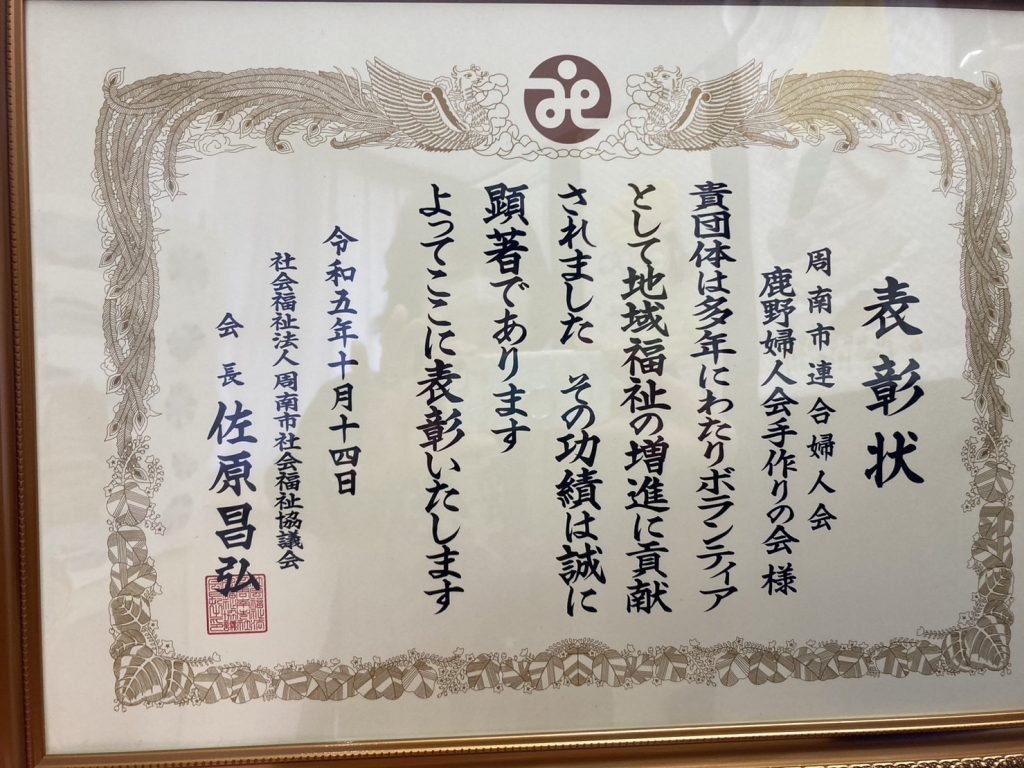 表彰状
周南市連合婦人会
鹿野婦人会手作りの会 様
貴団体は多年にわたりボランティア
として地域福祉の増進に貢献
されました その功績は誠に
顕著であります
よってここに表彰いたします
令和五年十月十四日
社会福祉法人周南市社会福祉協議会
会長 佐原昌弘